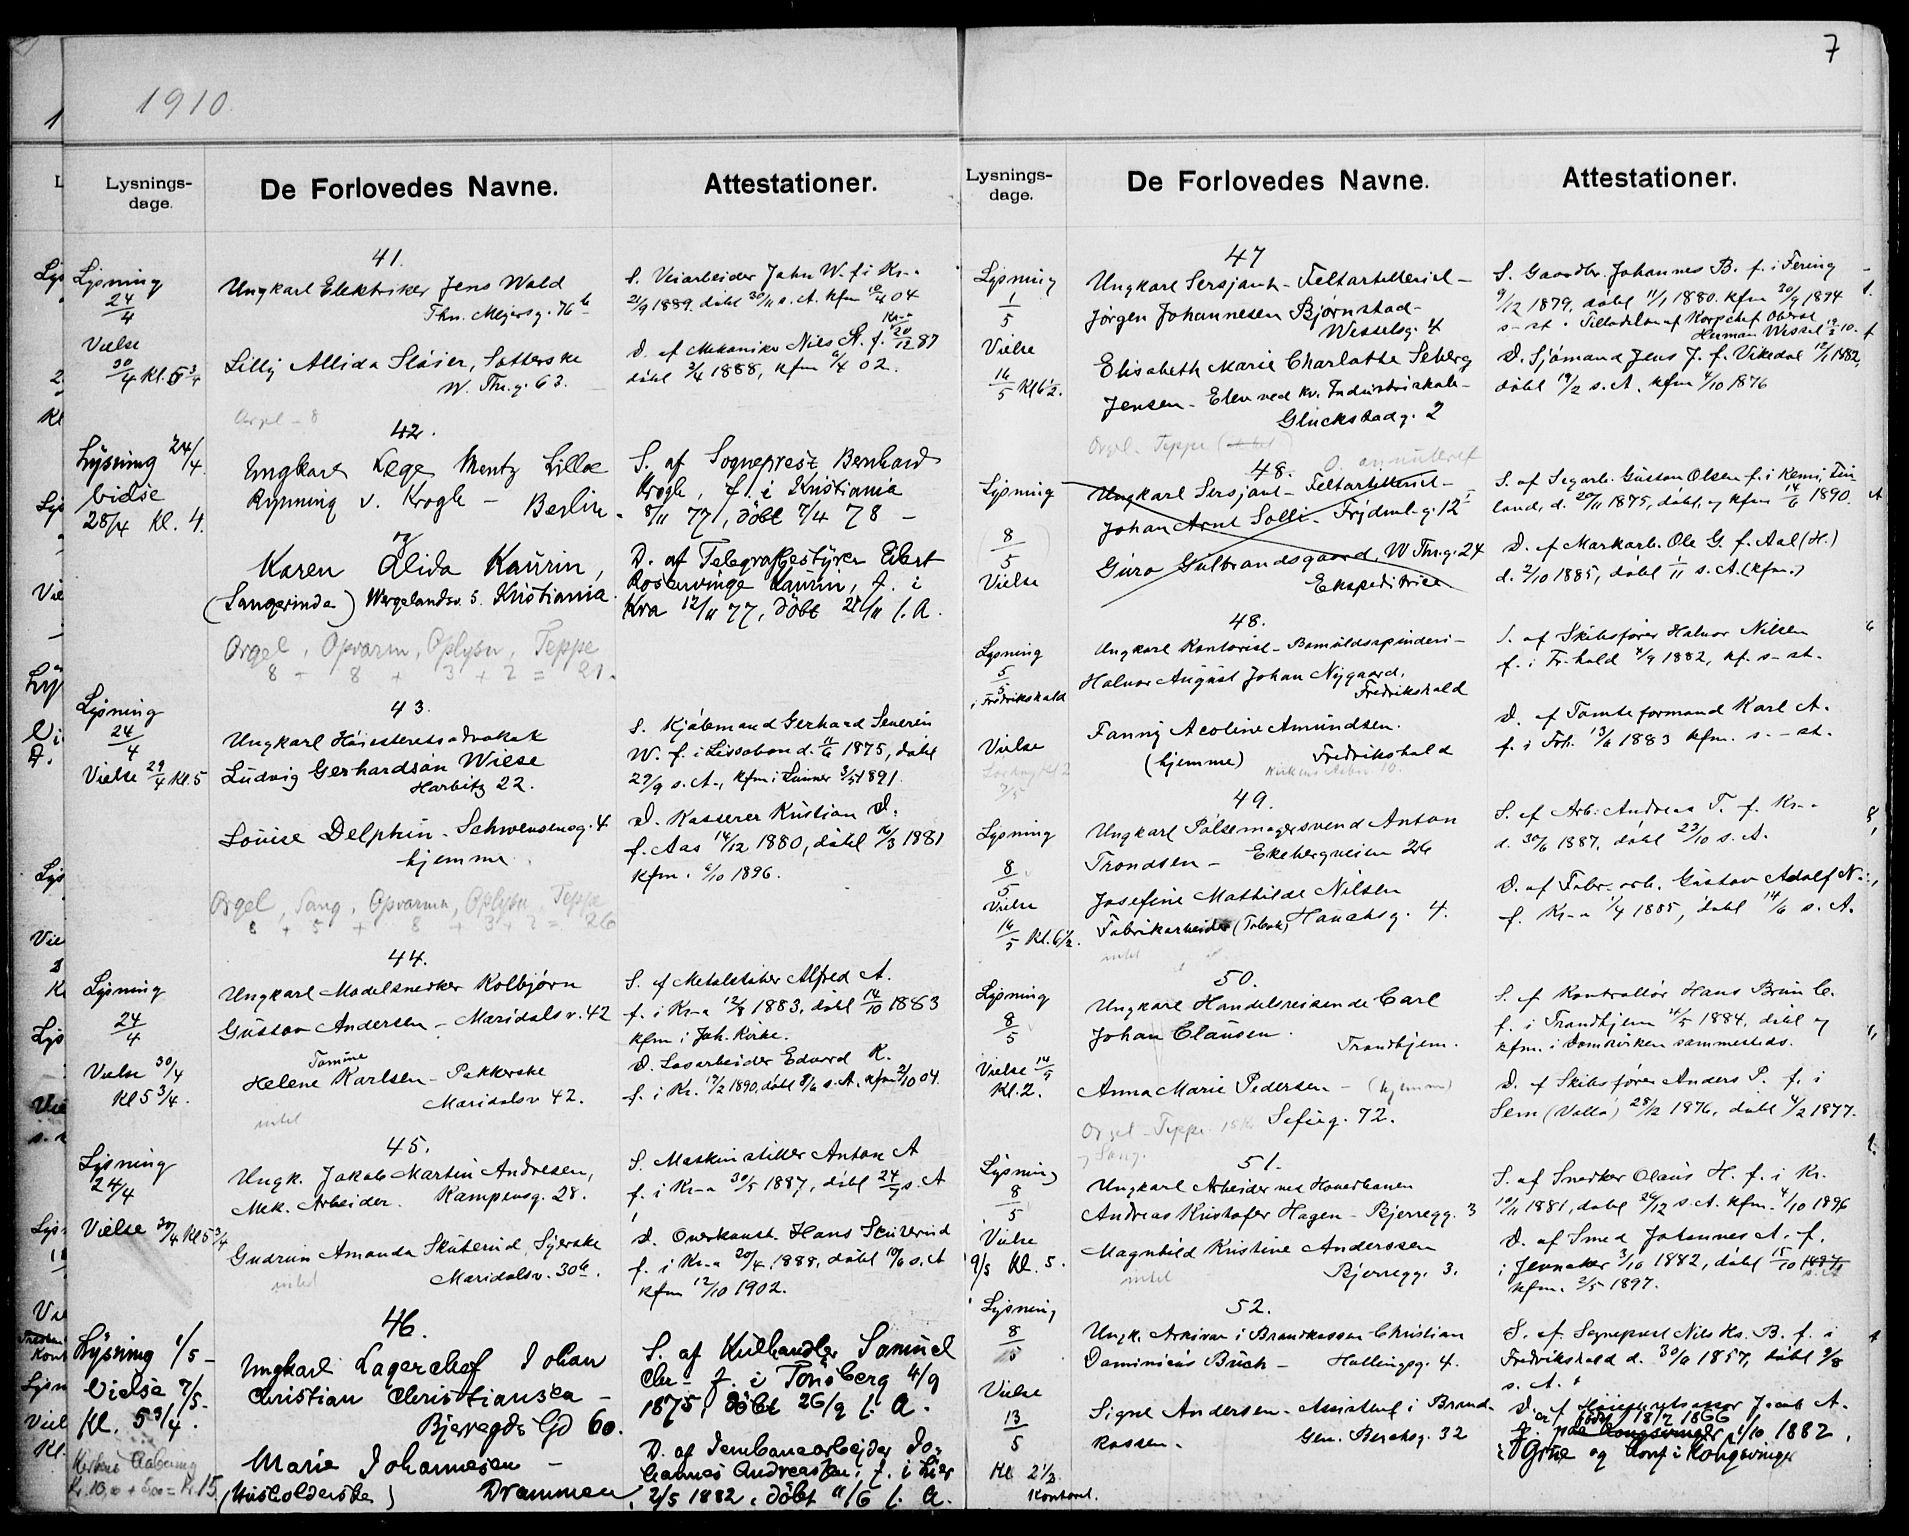 7
1910.
Lysnings-
dage.
De Forlovedes Navne.
Attestationer.
41.
Lysning
24/4
Vielse
30/4 Kl. 5 3/4
Ungkarl Elektriker Jens Wold
Thv. Meijersg. 76 b
Lilly Allida Sløier, Sætterske
W. Thr. g. 63.
Orgel - 8
S. Veiarbeider Jahn W. f. i Kr-a
21/9 1889. døbt 30/11 s. A. kfm 04
D. af Mekaniker Nils S. f. Kr-a 20/12 87
døbt 3/4 1888, kfm 6/4 02.
42.
Lysning 24/4.
Vielse
28/4 Kl. 4.
Ungkarl Læge Mentz Lilloe
Rynning v. Krogh - Berlin.
og
Karen Alida Kaurin,
(Sangerinde) Wergelandsv. 5. Kristiania.
Orgel, Opvarm, Oplysn, Teppe
8 + 8 + 3 + 2 = 21.
S. af Sogneprest Bernhard
Krogh, f. i Kristiania
8/11 77, døbt 7/4 78 -
D. af Telegrafbestyrer Edvart
Rosenvinge Kaurin, f. i
Kra 12/11 77, døbt 25/11 s. A.
43.
Lysning
24/4
Vielse 29/4 Kl. 5
Ungkarl Høiesteretsadvokat
Ludvig Gerhardson Wiese
Harbitz 22.
Louise Delphin - Schwensensg. 4
hjemme.
Orgel, Sang, Opvarm, Oplysn, Teppe
8 + 5 + 8 + 3 + 2 = 26
S. Kjøbmand Gerhard Severin
W. f. i Lissabon d. 11/6 1875, døbt
29/9 s. A., kfm i Lunner 3/5 1891.
D. Kasserer Kristian D.
f. Aas 14/12 1880, døbt 16/3 1881
kfm. 6/10 1896.
44.
Lysning
24/4
Vielse 30/4
Kl 5 3/4.
Ungkarl Modelsnekker Kolbjørn
Gustav Andersen - Maridalsv. 42
Tomine
Helene Karlsen - Pakkerske
Maridalsv 42.
intet
S. af Metalstøber Alfred A.
f. i Kr-a 12/8 1883, døbt 14/10 1883
kfm i Joh. Kirke.
D. Løsarbeider Edvard K.
f. i Kr. 17/2 1890, døbt 8/6 s. A. kfm 2/10 04.
45.
Lysning
24/4
Vielse 30/4 Kl 5 3/4
Ungk. Jakob Martin Andresen,
Mek. Arbeider. Kampensg. 28.
Gudrun Amanda Skuterud, Syerske
Maridalsv. 30 b.
intet
S. Maskinstiller Anton A
f. i Kr-a 30/5 1887, døbt 24/7 s. A
D. Overkonst. Hans Skuterud
f. i Kr-a 20/4 1888, døbt 10/6 s. A
kfm 12/10 1902.
46.
Lysning 1/5 -
Vielse 7/5.
Kl. 5 3/4.
Kr. 10,00 + 5,00 = Kr. 15
Ungkarl Lagerchef Johan
Christian Christiansen -
Bjerregds Gd 60.
Marie Johannesen -
(Husholderske) Drammen
S. af Kulhandler Samuel
Chr - f. i Tønsberg 4/9
1875, døbt 26/9 s. A.
D. af Jernbanearbejder Jo-
hannes Andreassen, f. i Lier
2/5 1882, døbt 11/6 s. A.
Lysnings-
dage.
De Forlovedes Navne.
Attestationer.
47
Lysning
1/5
Vielse
16/5 Kl 6 1/2.
Ungkarl Sersjant - Feltartilleriet -
Jørgen Johannesen Bjørnstad -
Wesselsg. 4
Elisabeth Marie Charlotte Seberg
Jensen - Elev ved Kv. Industriskole -
Gluckstadg. 2
Orgel - Teppe
S. Gaardbr. Johannes B. f. i Fering
9/12 1879, døbt 11/1 1880. kfm 30/9 1894
s - st. Tilladelse af Korpschef Oberst
Herman Wessel 12/3 10.
D. Sjømand Jens J. f. Vikedal 12/1 1882,
døbt 19/2 s. A. kfm 4/10 1896
48. annulleret
Lysning
8/5
Vielse
Ungkarl Sersjant - Feltartilleriet -
Johan Arnt Solli - Frydenl. g. 12
Guro Gulbrandsgaard, W Thr. g. 24
Ekspeditrice
S. af Sagarb. Gustav Olsen f. i Kemi, Fin
land, d. 20/11 1875, døbt, og kfm 14/6 1890
D. af Markarb. Ole G. f. Aal (H.)
d. 2/10 1885, døbt 1/11 s. A. (kfm.)
48.
Lysning
5/5
i Fredrikshald
Vielse
Lørdag Kl 2
7/5
Ungkarl Kontorist - Bomuldsspinderi -
Halvor August Johan Nygaard,
Fredrikshald
Fanny Acoline Amundsen.
(hjemme) Fredrikshald
S. af Skibsfører Halvor Nilsen
f. i Fr. hald 4/9 1882, kf. s - st.
D. af Tomteformand Karl A.
f. i Frh. 13/6 1883 kfm. s. - st.
49.
Lysning
8/5
Vielse
16/5 Kl. 6 1/2.
Ungkarl Pølsemagersvend Anton
Trondsen - Ekebergveien 26
Josefine Mathilde Nilsen
Fabrikarbeider (Tobak) Hauchsg. 4.
intet
S. af Arb. Andreas T. f. Kr-a
d. 30/6 1887, døbt 23/10 s. A.
D. af Fabr. arb. Gustav Adolf N.
f. Kr-a 1/4 1885, døbt 14/6 s. A.
50.
Lysning
8/5
Vielse 14/5
Kl. 2.
Ungkarl Handelsreisende Carl
Johan Clausen.
Trondhjem.
Anna Marie Pedersen - (hjemme)
Seftug. 72.
Orgel - Teppe
og Sang.
S. af Kontrollør Hans Bruun C.
f. i Trondhjem 14/5 1884, døbt og
kfm. i Domkirken sammesteds.
D. af Skibsfører Anders P. f. i
Sem (Vallø) 28/12 1876, døbt 4/2 1877.
51.
Lysning
8/5
Vielse
9/5 Kl. 5.
Ungkarl Arbeider ved Hovedbanen
Andreas Kristofer Hagen - Bjerregg. 3
Magnhild Kristine Anderssen
Bjerregg. 3.
intet
S. af Snedker Olaus H. f. i Kr.
10/11 1881, døbt 26/12 s. A. kfm. 4/10 1896
D. af Smed Johannes A. f.
i Jevnaker 3/10 1882, døbt 15/10
kfm. 2/5 1897.
52.
Lysning
8/5
Vielse
13/5
Kl 2 1/2.
Kontoret.
Ungk. Arkivar i Brandkassen Christian
Dominicus Buch - Hallingsg. 4.
Signe Andersen - Assistent i Brand-
kassen. Gen. Berchsg. 32
S. af Sogneprest Nils Ks. B. f. i
Fredrikshald d. 30/6 1857, døbt 9/8
s. A.
D. af Jacob A.
er født 18/2 1866
1/10 1882.
i Grue og konf i Kongsvinger